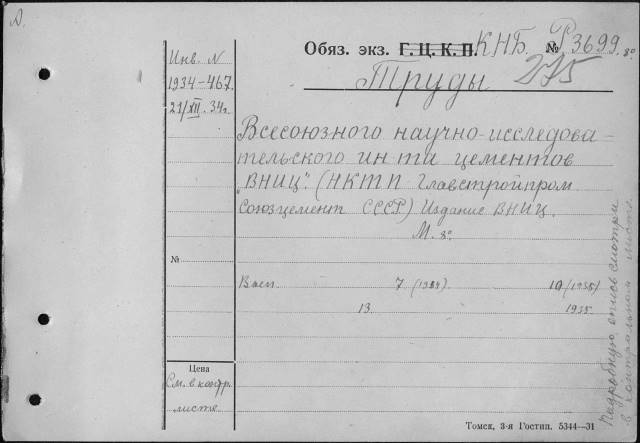 Инв. N
1934-467.
21/XII. 34г.
Обяз. экз. Г. Ц. К. П. КНБ. № Р3699. 8°
275
Труды
Всесоюзного научно-исследова-
тельского ин-та цементов
„ВНИЦ". (НКТП-Главстройпром
Союзцемент СССР) Издание ВНИЦ.
М. 8°.
№
Вып. 7 (1934) 10 (1935)
13 1935
Цена
См. в контр.
листе
Подробную опись смотри
в контрольном листе.
Томск, 3-я Гостип. 5344—31